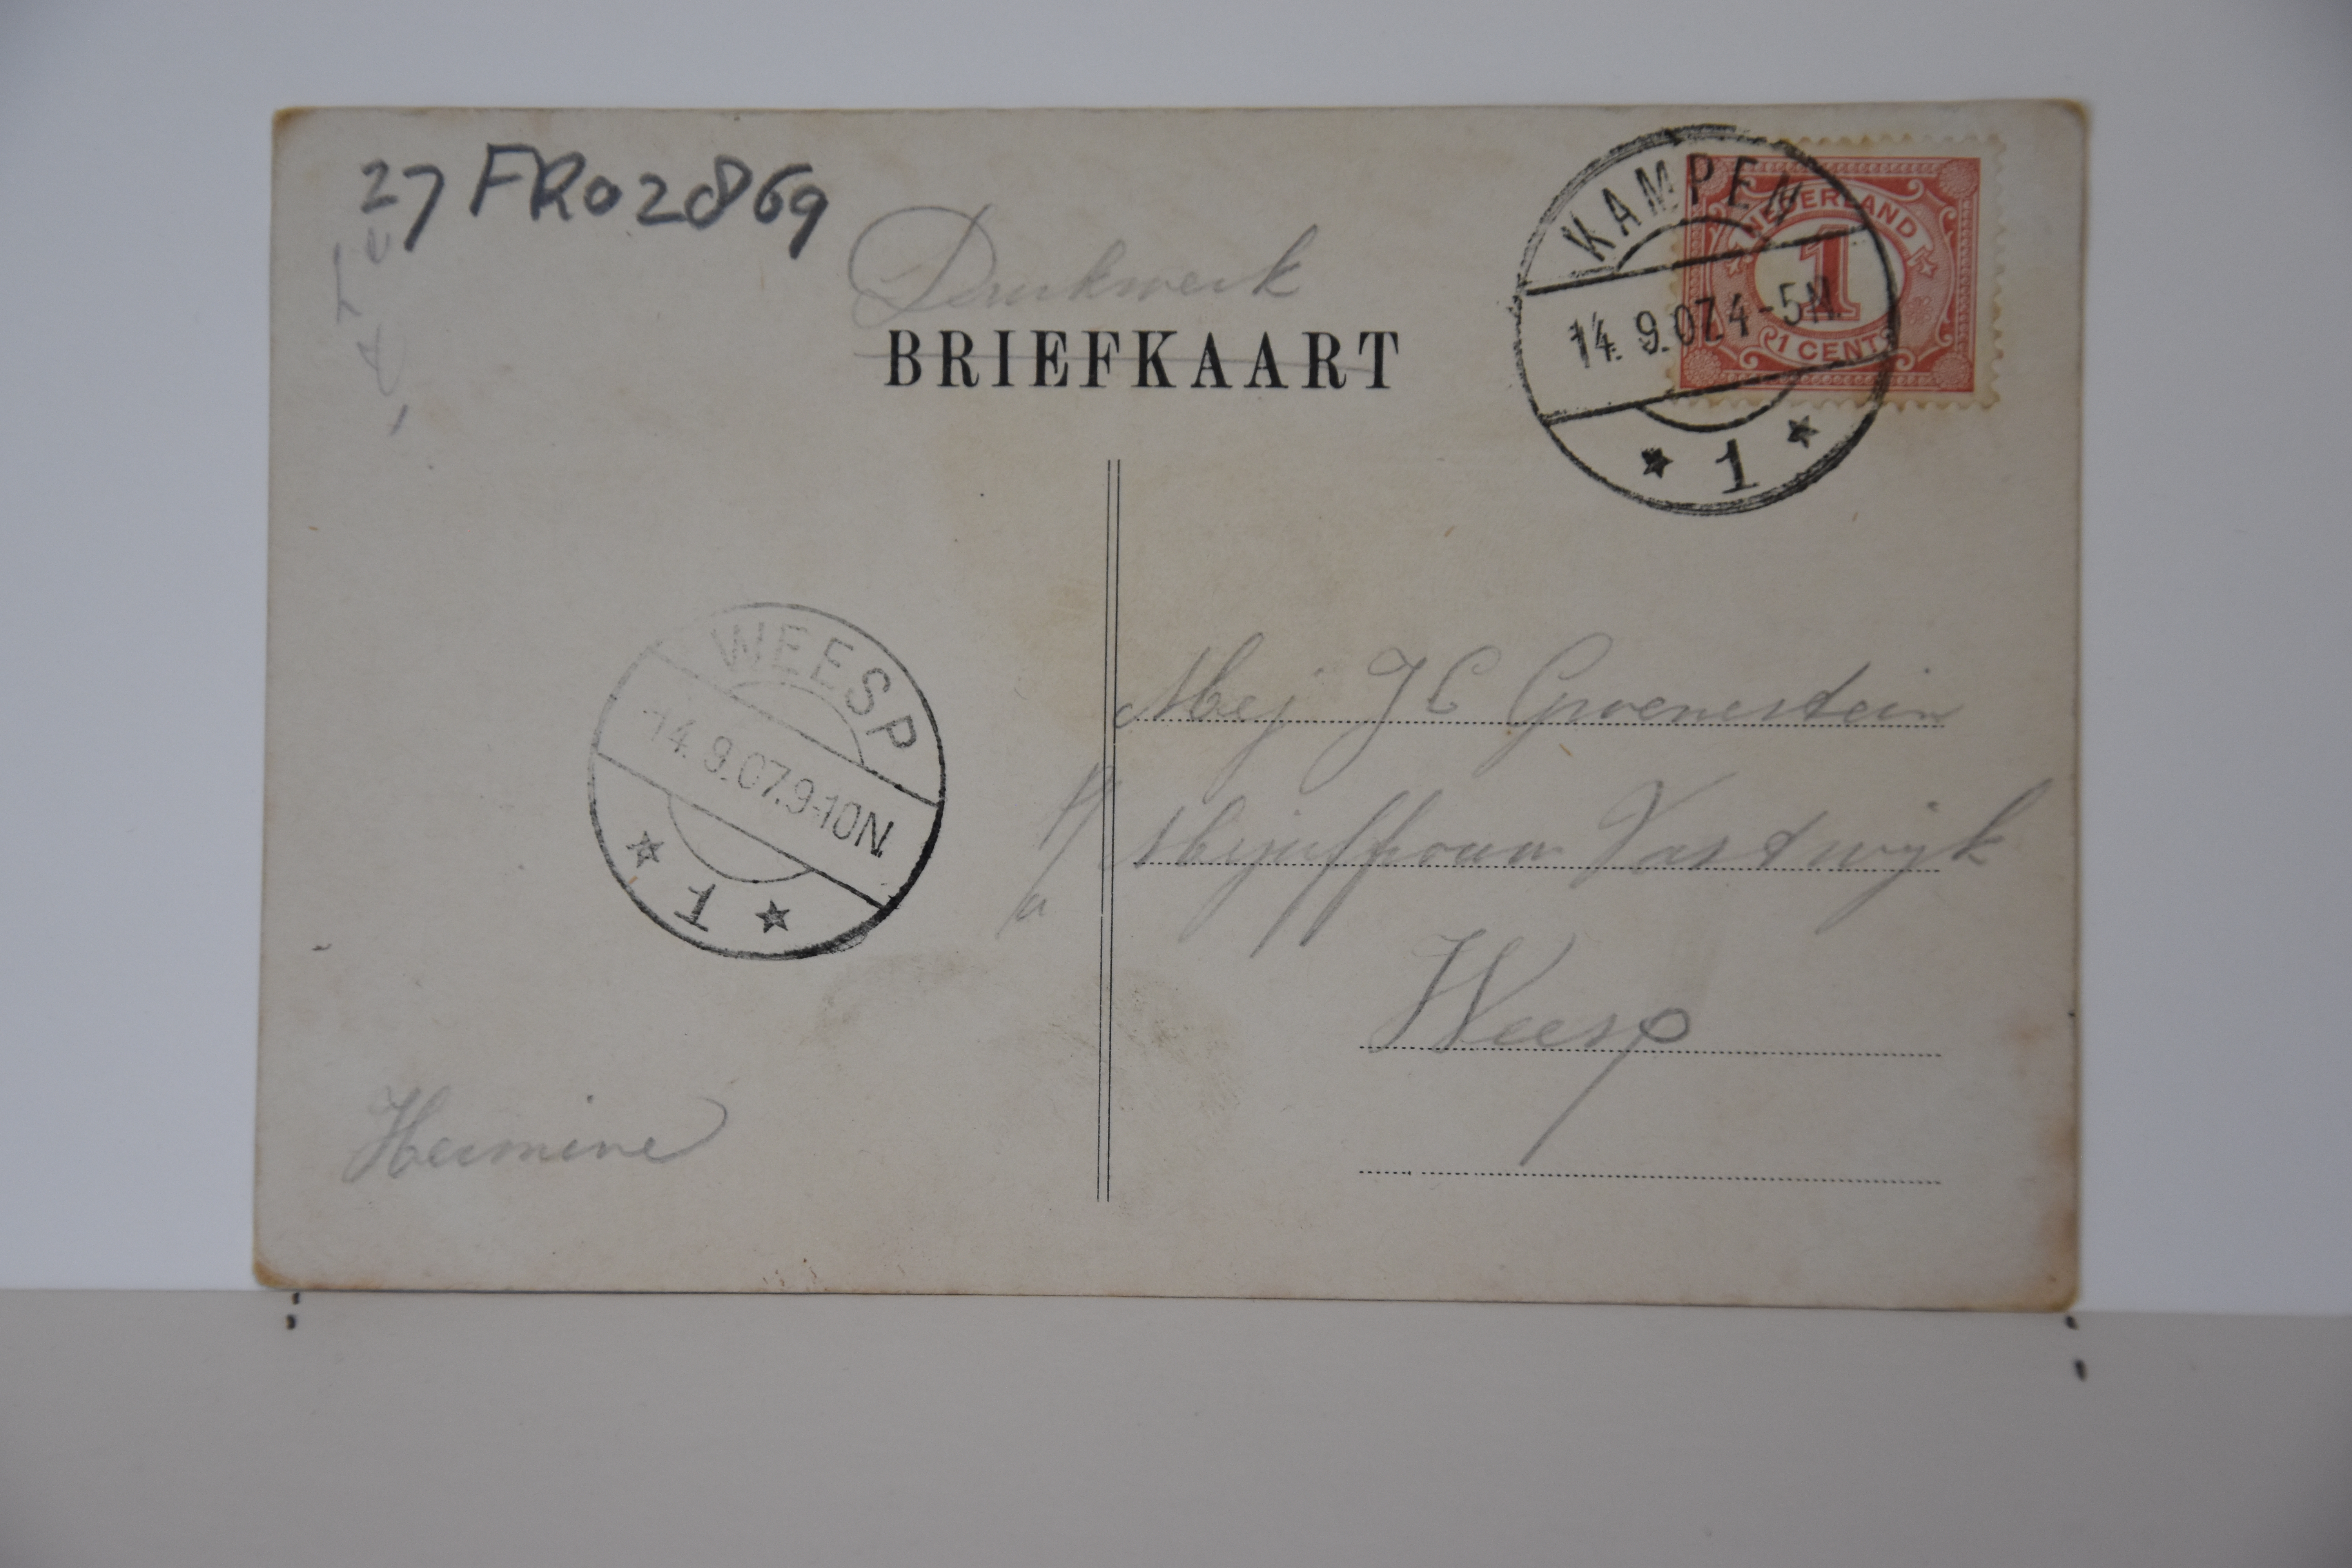 27FR02869
Drukwerk
BRIEFKAART
KAMPEN
14. 9.07.4-5N.
1
NEDERLAND
1
1 CENT
WEESP
14. 9.07.9-10N.
1
Mej J C Groenestein
p/a Mejuffrouw Vastwijk
Weesp
Hermine